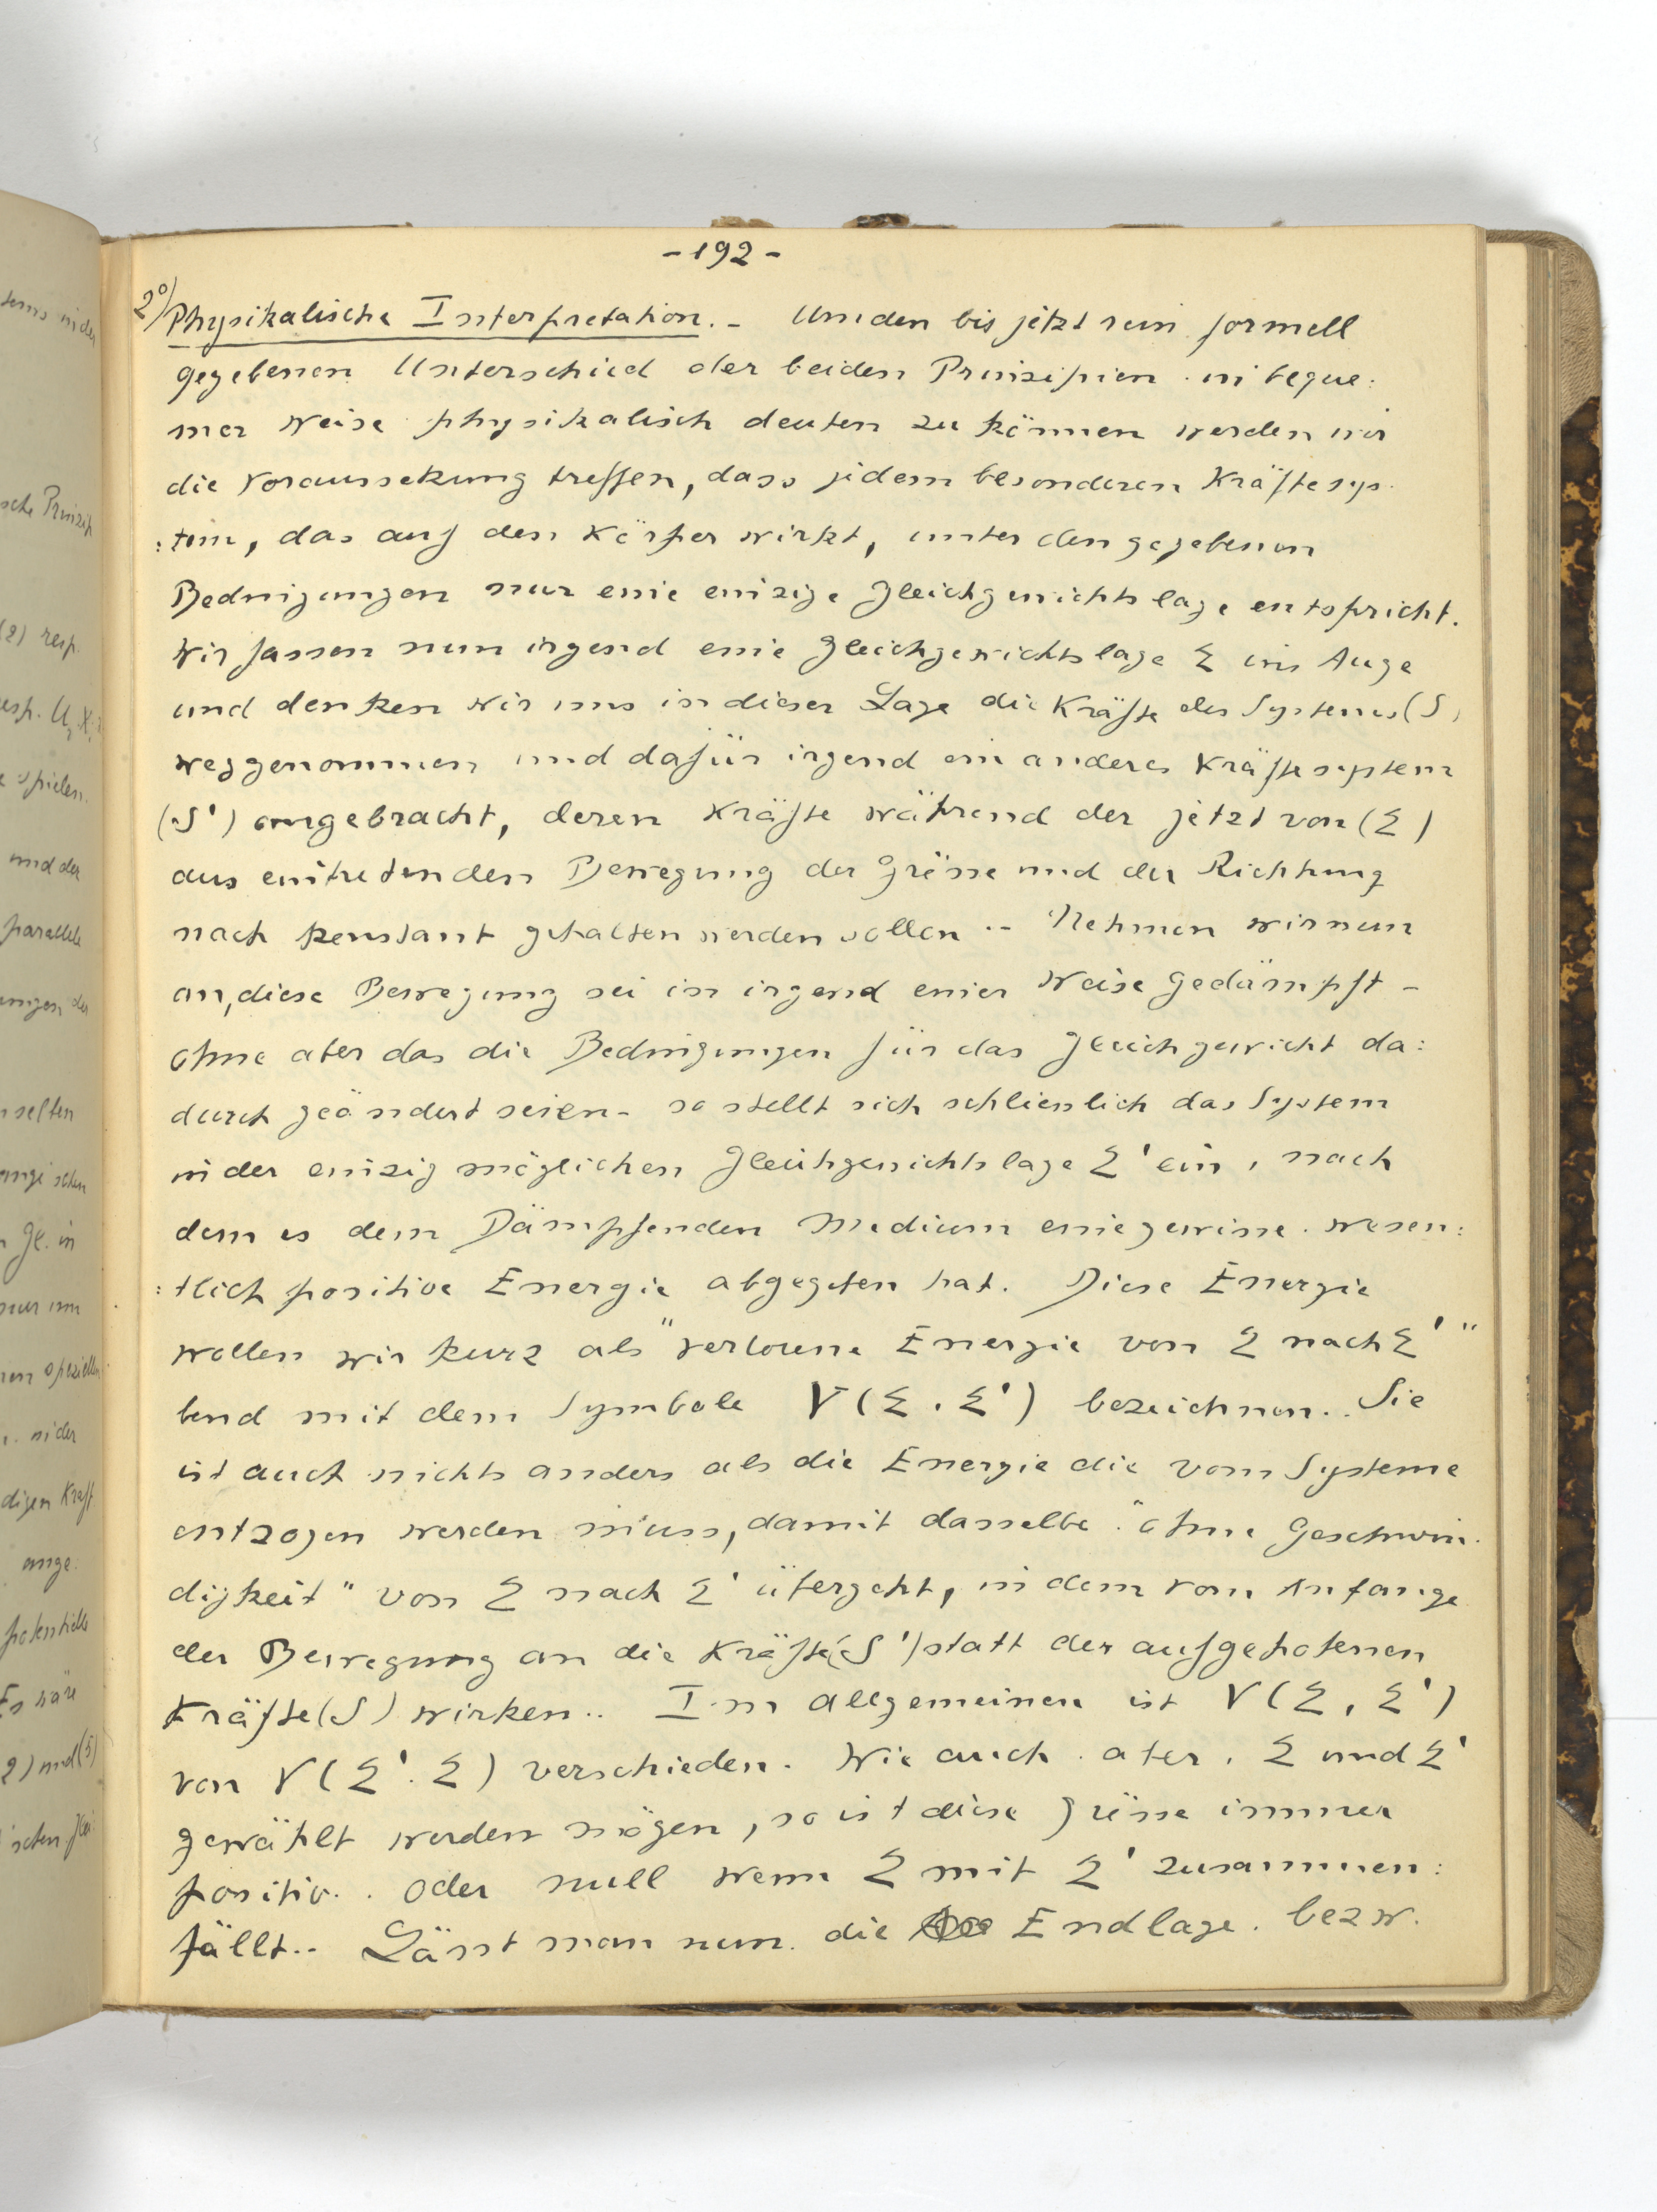 -192-
2°) Physikalische Interpretation. - Um den bis jetzt rein formell
gegebenen Unterschied der beiden Prinzipien in beque:
mer Weise physikalisch deuten zu können werden wir
die Voraussetzung treffen, dass jedem besonderen Kräftesys-
:tem, das auf den Körper wirkt, unter den gegebenen
Bedingungen nur eine einzige Gleichgewichtslage entspricht.
Wir fassen nun irgend eine Gleichgewichtslage Σ ins Auge
und denken wir uns in dieser Lage die Kräfte des Systems (S)
weggenommen und dafür irgend ein anderes Kräftesystem
(S') angebracht, deren Kräfte während der jetzt von (Σ)
aus eintretenden Bewegung der Grösse und der Richtung
nach konstant gehalten werden sollen.- Nehmen wir nun
an, diese Bewegung sei in irgend einer Weise gedämpft -
ohne aber das die Bedingungen für das Gleichgewicht da:
durch geändert seien - so stellt sich schliesslich das System
in der einzig möglichen Gleichgewichtslage Σ' ein, nach
dem es dem Dämpfenden Medium eine gewisse wesen:
:tlich positive Energie abgegeben hat. Diese Energie
wollen wir kurz als "verlorene Energie von Σ nach Σ'"
bend mit dem Symbole V(Σ.Σ') bezeichnen.. Sie
ist auch nichts anders als die Energie die vom Systeme
entzogen werden muss, damit dasselbe "ohne Geschwin-
digkeit" von Σ nach Σ' übergeht, in dem vom Anfange
der Bewegung an die Kräfte (S') statt der aufgehobenen
Kräfte (S) wirken.. Im allgemeinen ist V(Σ, Σ')
von V(Σ'.Σ) verschieden. Wie auch aber, Σ und Σ'
gewählt werden mögen, so ist diese Grösse immer
positiv.. oder null wenn Σ mit Σ' zusammen:
fällt.. Lässt man nun die Endlage. bezw.
tems in der
sche Prinzip
(2) resp.
esp. U
spielen.
und der
parallele
ungen der
selben
Gl. in
nur um
speziellen
in der
digen Kraft
ange:
potentielle
Es wäre
2) und (3)